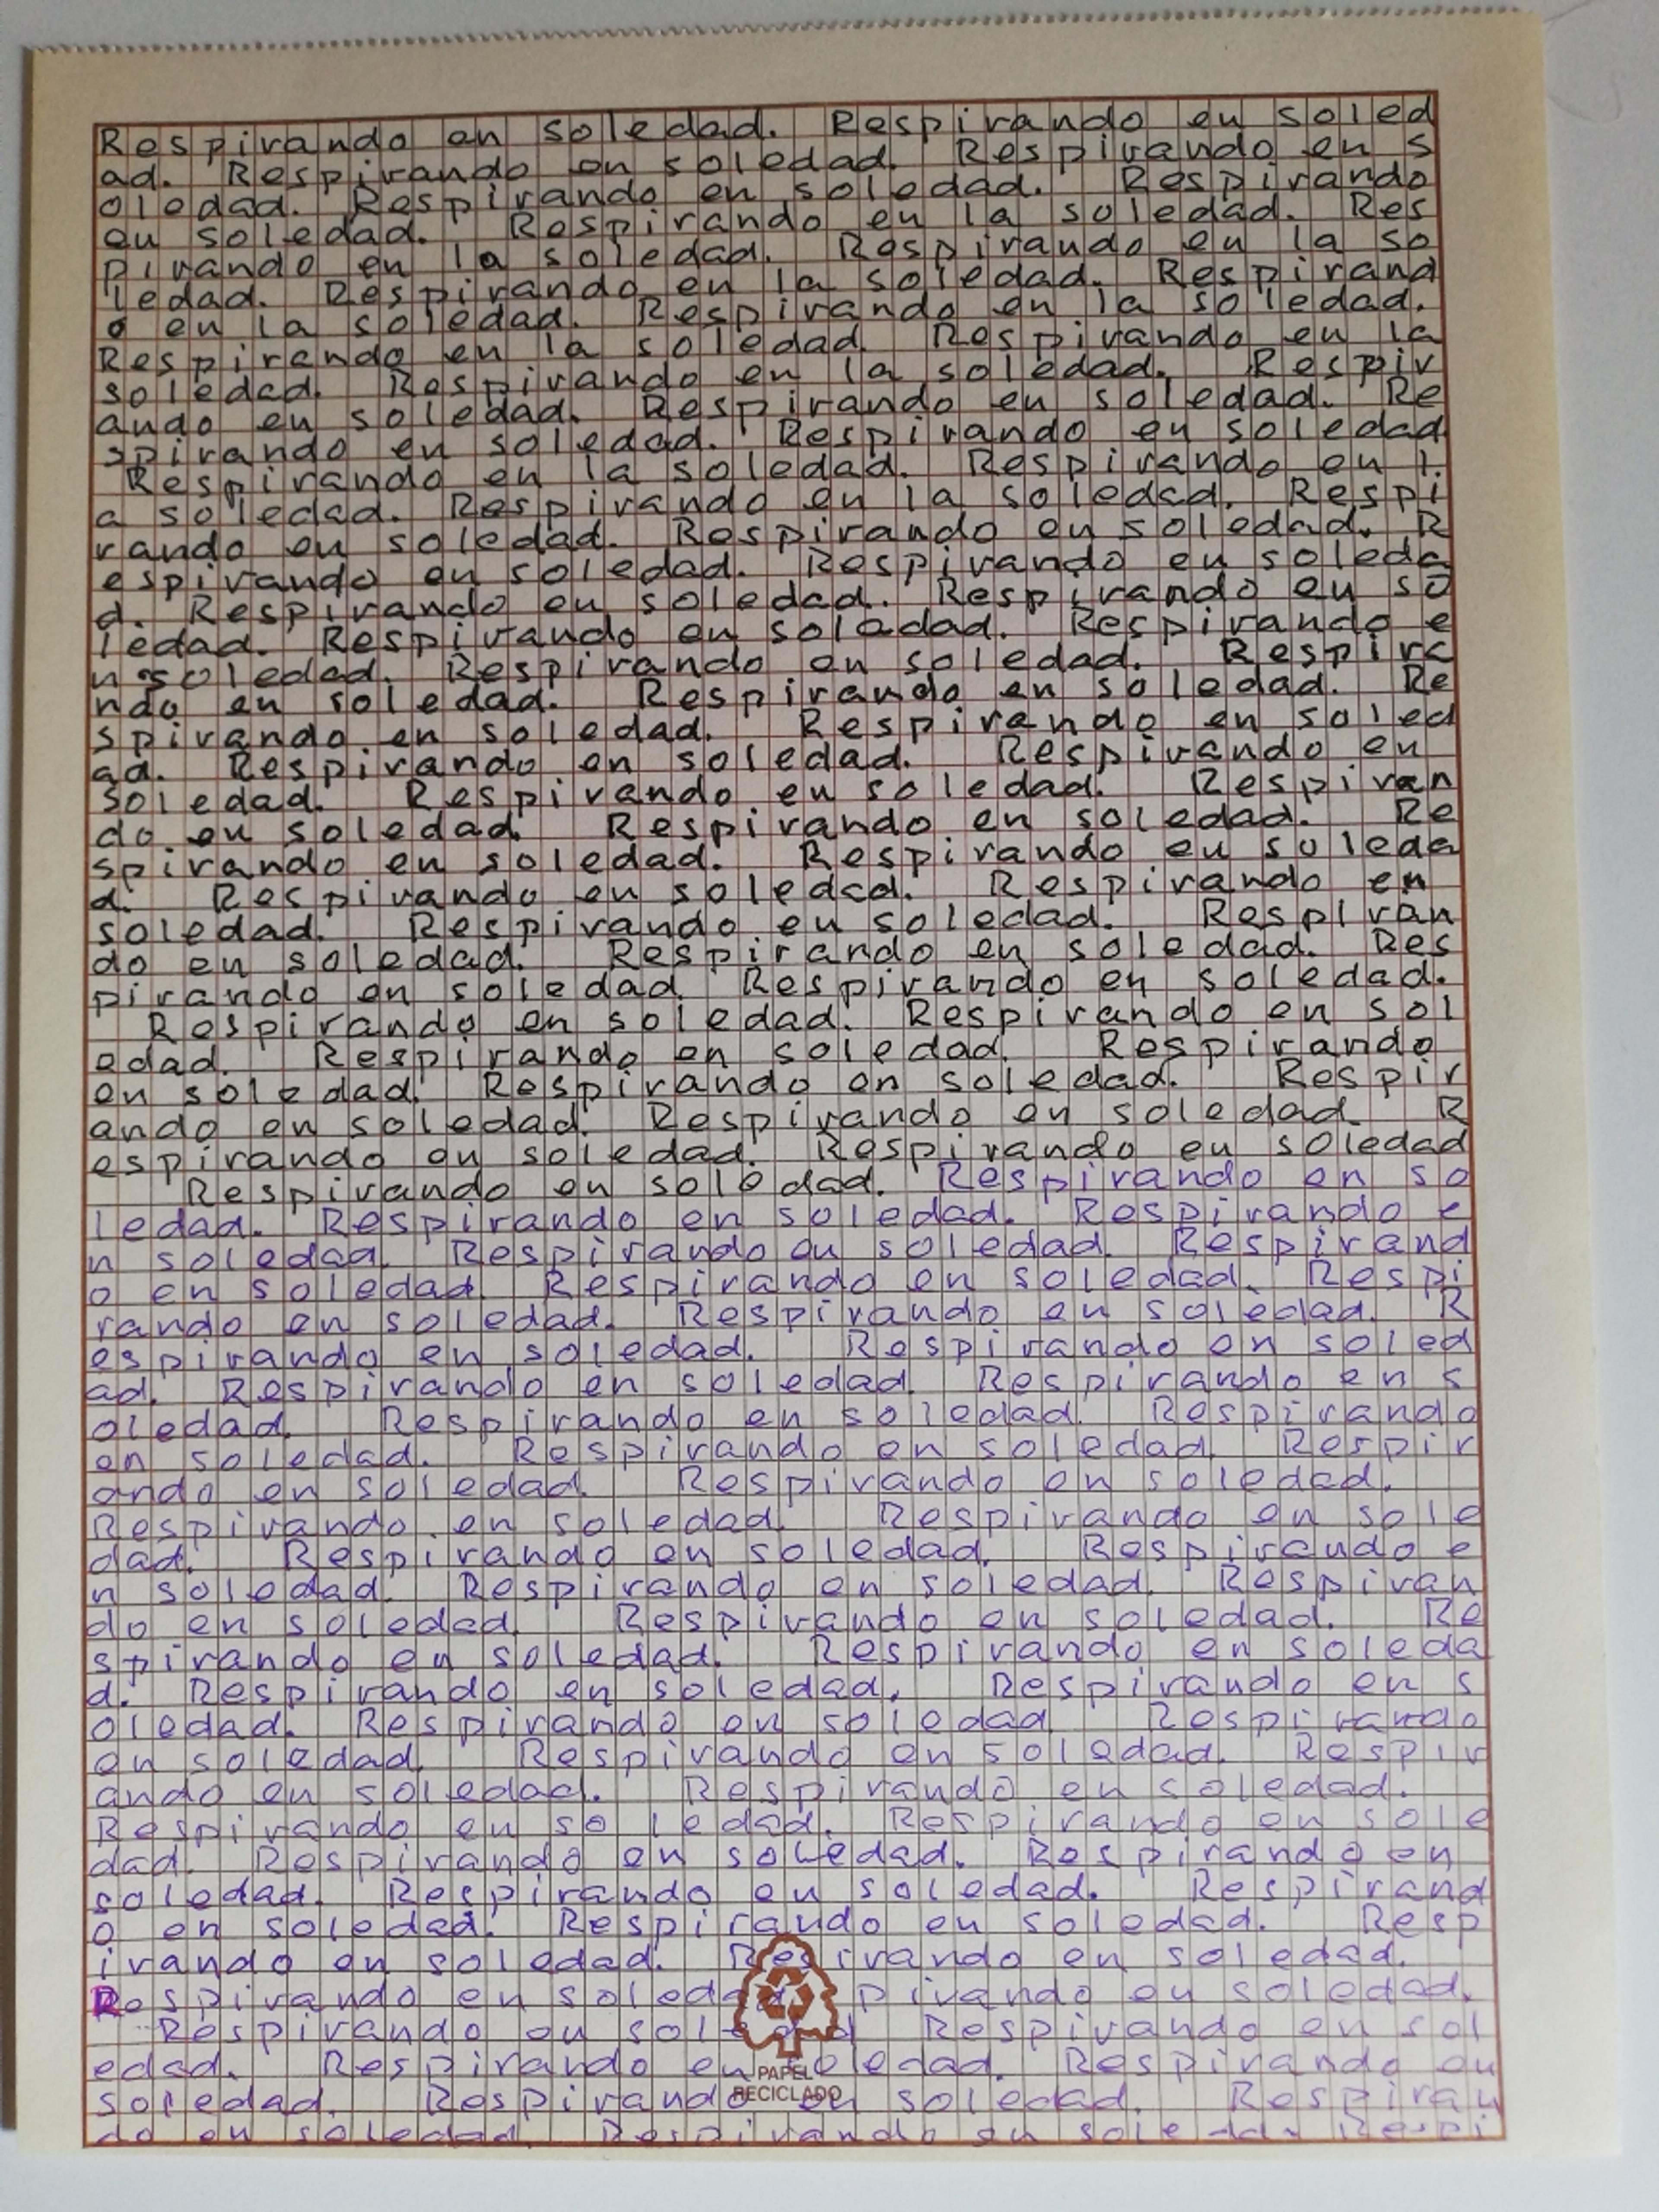 Respirando en soledad. Respirando en soled
ad. Respirando en soledad. Respirando en s
oledad. Respirando en soledad. Respirando
en soledad. Respirando en la soledad. Res
pirando en la soledad. Respirando en la so
ledad. Respirando en la soledad. Respirand
o en la soledad. Respirando en la soledad.
Respirando en la soledad. Respirando en la
soledad. Respirando en la soledad. Respir
ando en soledad. Respirando en soledad. Re
spirando en soledad. Respirando en soledad
Respirando en la soledad. Respirando en l
a soledad. Respirando en la soledad. Respi
rando en soledad. Respirando en soledad. R
espirando en soledad. Respirando en soleda
d. Respirando en soledad. Respirando en so
ledad. Respirando en soledad. Respirando e
n soledad. Respirando en soledad. Respira
ndo en soledad. Respirando en soledad. Re
spirando en soledad. Respirando en soled
ad. Respirando en soledad. Respirando en
soledad. Respirando en soledad. Respiran
do en soledad. Respirando en soledad. Re
spirando en soledad. Respirando en soleda
d. Respirando en soledad. Respirando en
soledad. Respirando en soledad. Respiran
do en soledad. Respirando en soledad. Res
pirando en soledad. Respirando en soledad.
Respirando en soledad. Respirando en sol
edad. Respirando en soledad. Respirando
en soledad. Respirando en soledad. Respir
ando en soledad. Respirando en soledad. R
espirando en soledad. Respirando en soledad
Respirando en soledad. Respirando en so
ledad. Respirando en soledad. Respirando e
n soledad. Respirando en soledad. Respirand
o en soledad. Respirando en soledad. Respi
rando en soledad. Respirando en soledad. R
espirando en soledad. Respirando en soled
ad. Respirando en soledad. Respirando en s
oledad. Respirando en soledad. Respirando
en soledad. Respirando en soledad. Respir
ando en soledad. Respirando en soledad.
Respirando en soledad. Respirando en sole
dad. Respirando en soledad. Respirando e
n soledad. Respirando en soledad. Respiran
do en soledad. Respirando en soledad. Re
spirando en soledad. Respirando en soleda
d. Respirando en soledad. Respirando en s
oledad. Respirando en soledad. Respirando
en soledad. Respirando en soledad. Respir
ando en soledad. Respirando en soledad.
Respirando en soledad. Respirando en sole
dad. Respirando en soledad. Respirando en
soledad. Respirando en soledad. Respirand
o en soledad. Respirando en soledad. Resp
irando en soledad. Respirando en soledad.
Respirando en soledad pirando en soledad.
Respirando en soledad Respirando en sol
edad. Respirando en soledad. Respirando en
soledad. Respirando en soledad. Respiran
do en soledad. Respirando en soledad. Respi
PAPEL
RECICLADO